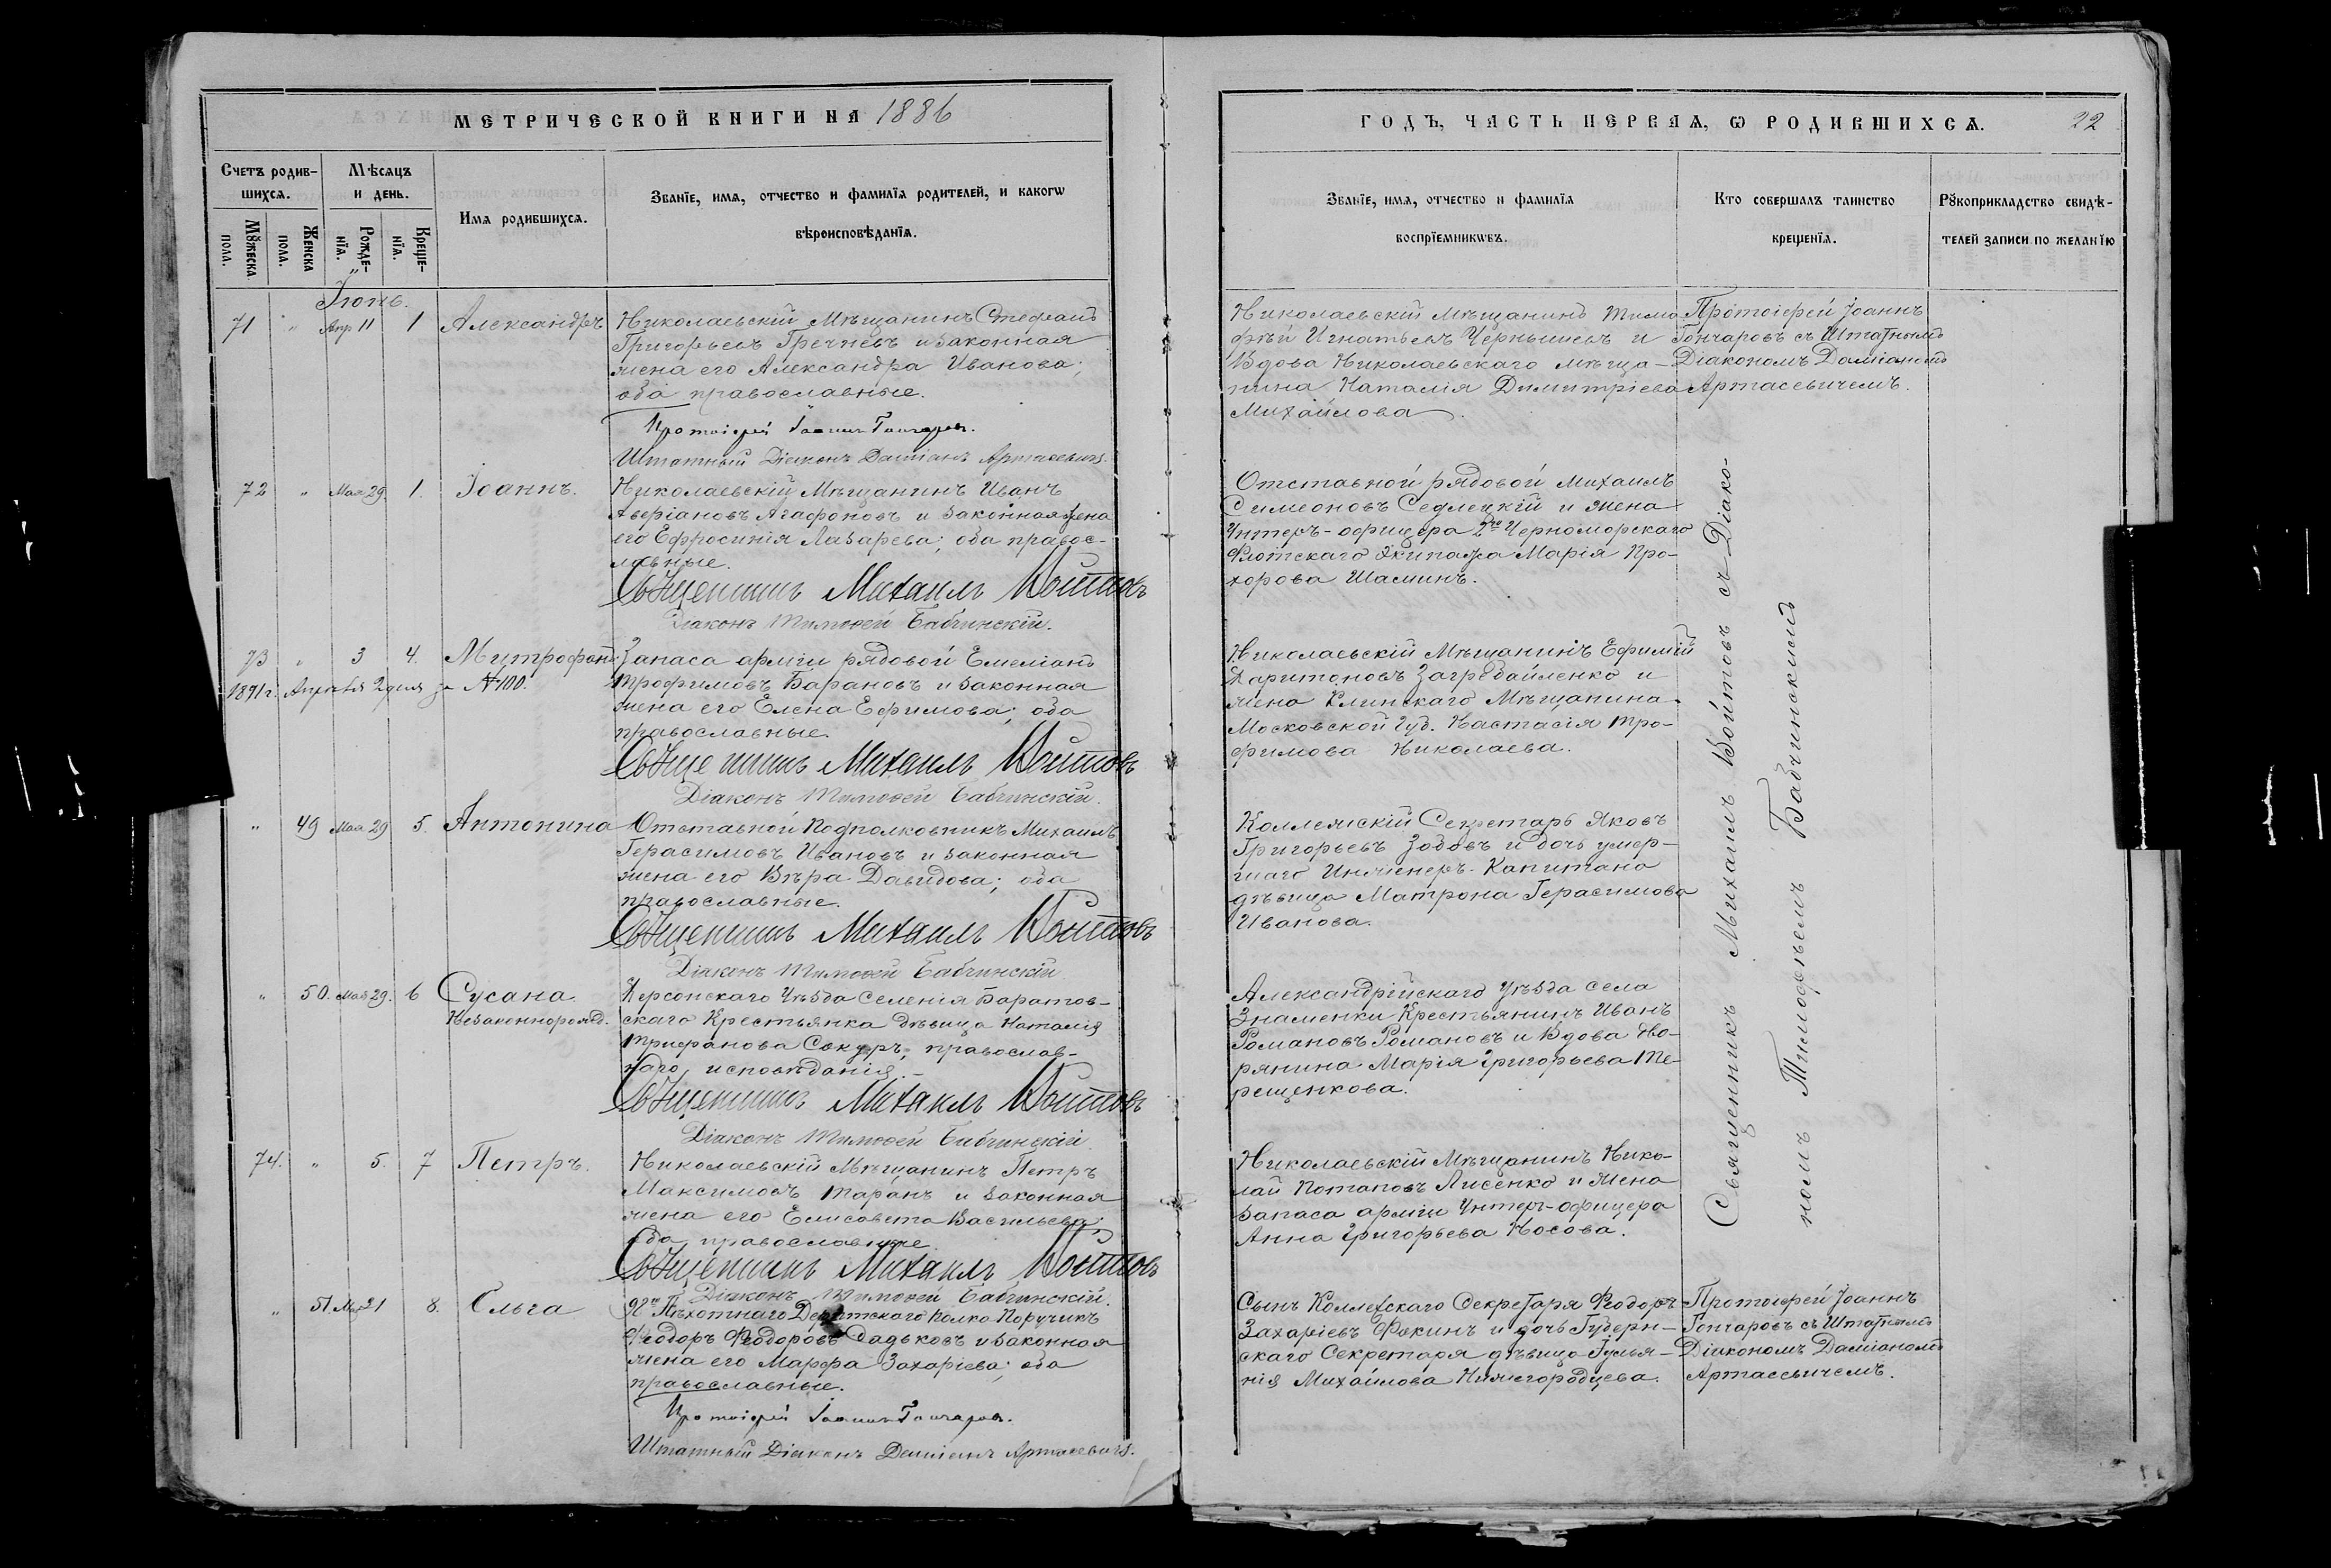 МЕТРИЧЕСКОЙ КНИГИ НА 1886
Счетъ родив-
шихся.
Мѣсяцъ
и день.
Имя родившихся.
Званїе, имя, отчество и фамилїя родителей, и какогѡ
вѣроисповѣданїя.
Мꙋжеска
пола.
Женска
пола.
Рожде-
нїя.
Креще-
нїя.
Іюнь.
71 " Апр 11 1 Александръ Николаевскій Мѣщанинъ Стефанъ
Григорьевъ Гречневъ и законная
жена его Александра Иванова;
оба православные.
Протоіерей Іоаннъ Гончаровъ.
Штатный Діаконъ Даміанъ Артасевичъ.
72 " Мая 29. 1. Іоаннъ. Николаевскій Мѣщанинъ Иванъ
Аверіановъ Агафоновъ и законная жена
его Ефросинія Лазарева; оба правос-
лавные.
Священникъ Михаилъ Войтовъ
Діаконъ Тимоѳей Бабчинскій.
73 " 3 4. Митрофанъ. Запаса арміи рядовой Емеліанъ
1891 г. Апрѣля 2 дня за №100. Трофимовъ Барановъ и законная
жена его Елена Ефимова; оба
православные.
Священникъ Михаилъ Войтовъ
Діаконъ Тимоѳей Бабчинскій.
" 49 Мая 29 5. Антонина Отставной Подполковникъ Михаилъ
Герасимовъ Ивановъ и законная
жена его Вѣра Давидова; оба
православные.
Священникъ Михаилъ Войтовъ
Діаконъ Тимоѳей Бабчинскій
" 50. Мая 29. 6 Сусана Херсонскаго Уѣзда селенія Баратов-
Незаконнорожд. скаго Крестьянка дѣвица Наталія
Трифанова Сокуръ, православ-
наго исповѣданія.
Священникъ Михаилъ Войтовъ
Діаконъ Тимоѳей Бабчинскій
74. " 5. 7 Петръ. Николаевскій Мѣщанинъ Петръ
Максимовъ Таранъ и законная
жена его Елисавета Васильева;
оба православные
Священникъ Михаилъ Войтовъ
Діаконъ Тимоѳей Бабчинскій.
" 51. Мая 21 8. Ольга Пѣхотнаго Дерптскаго полка Поручикъ
Ѳеодоръ Ѳеодоровъ Садьковъ и законная
жена его Марфа Захаріева; оба
православные.
Протоіерей Іоаннъ Гончаровъ.
Штатный Діаконъ Даміанъ Артасевичъ.
ГОДЪ, ЧАСТЬ ПЕРВАЯ, Ѡ РОДИВШИХСЯ. 22
Званїе, имя, отчество и фамилїя
воспрїемникѡвъ.
Кто совершалъ таинство
крещенїя.
Рꙋкоприкладство свидѣ-
телей записи по желанїю
Николаевскій Мѣщанинъ Тимо- Протоіерей Іоаннъ
фѣй Игнатьевъ Чернышевъ и Гончаровъ съ Штатнымъ
Вдова Николаевскаго мѣща- Діакономъ Даміаномъ
нина Наталія Димитріева Артасевичемъ.
Михайлова.
Отставной рядовой Михаилъ
Симеоновъ Седлецкій и жена
Унтеръ-офицера 2го Черноморскаго
Флотскаго Экипажа Марія Про-
хорова Шаминъ.
Николаевскій Мѣщанинъ Ефимій
Харитоновъ Загребайленко и
жена Клинскаго Мѣщанина
Московской Губ. Настасія Тро-
фимова Николаева.
Коллежскій Секретарь Яковъ
Григорьевъ Зобовъ и дочь умер-
шаго Инженеръ-Капитана
дѣвица Матрона Герасимова
Иванова.
Александрійскаго Уѣзда села
Знаменки Крестьянинъ Иванъ
Романовъ Романовъ и Вдова Дво-
рянина Марія Григорьева Те-
рещенкова.
Николаевскій Мѣщанинъ Нико-
лай Потаповъ Лисенко и жена
запаса арміи Унтеръ-офицера
Анна Григорьева Носова.
Священникъ Михаилъ Войтовъ съ Діако-
номъ Тимофѣемъ Бабчинскимъ
Сынъ Коллежскаго Секретаря Ѳеодоръ Протоіерей Іоаннъ
Захаріевъ Фокинъ и дочь Губерн- Гончаровъ съ Штатнымъ
скаго Секретаря дѣвица Іулья- Діакономъ Даміаномъ
нія Михайлова Нижегородцева. Артасевичемъ.